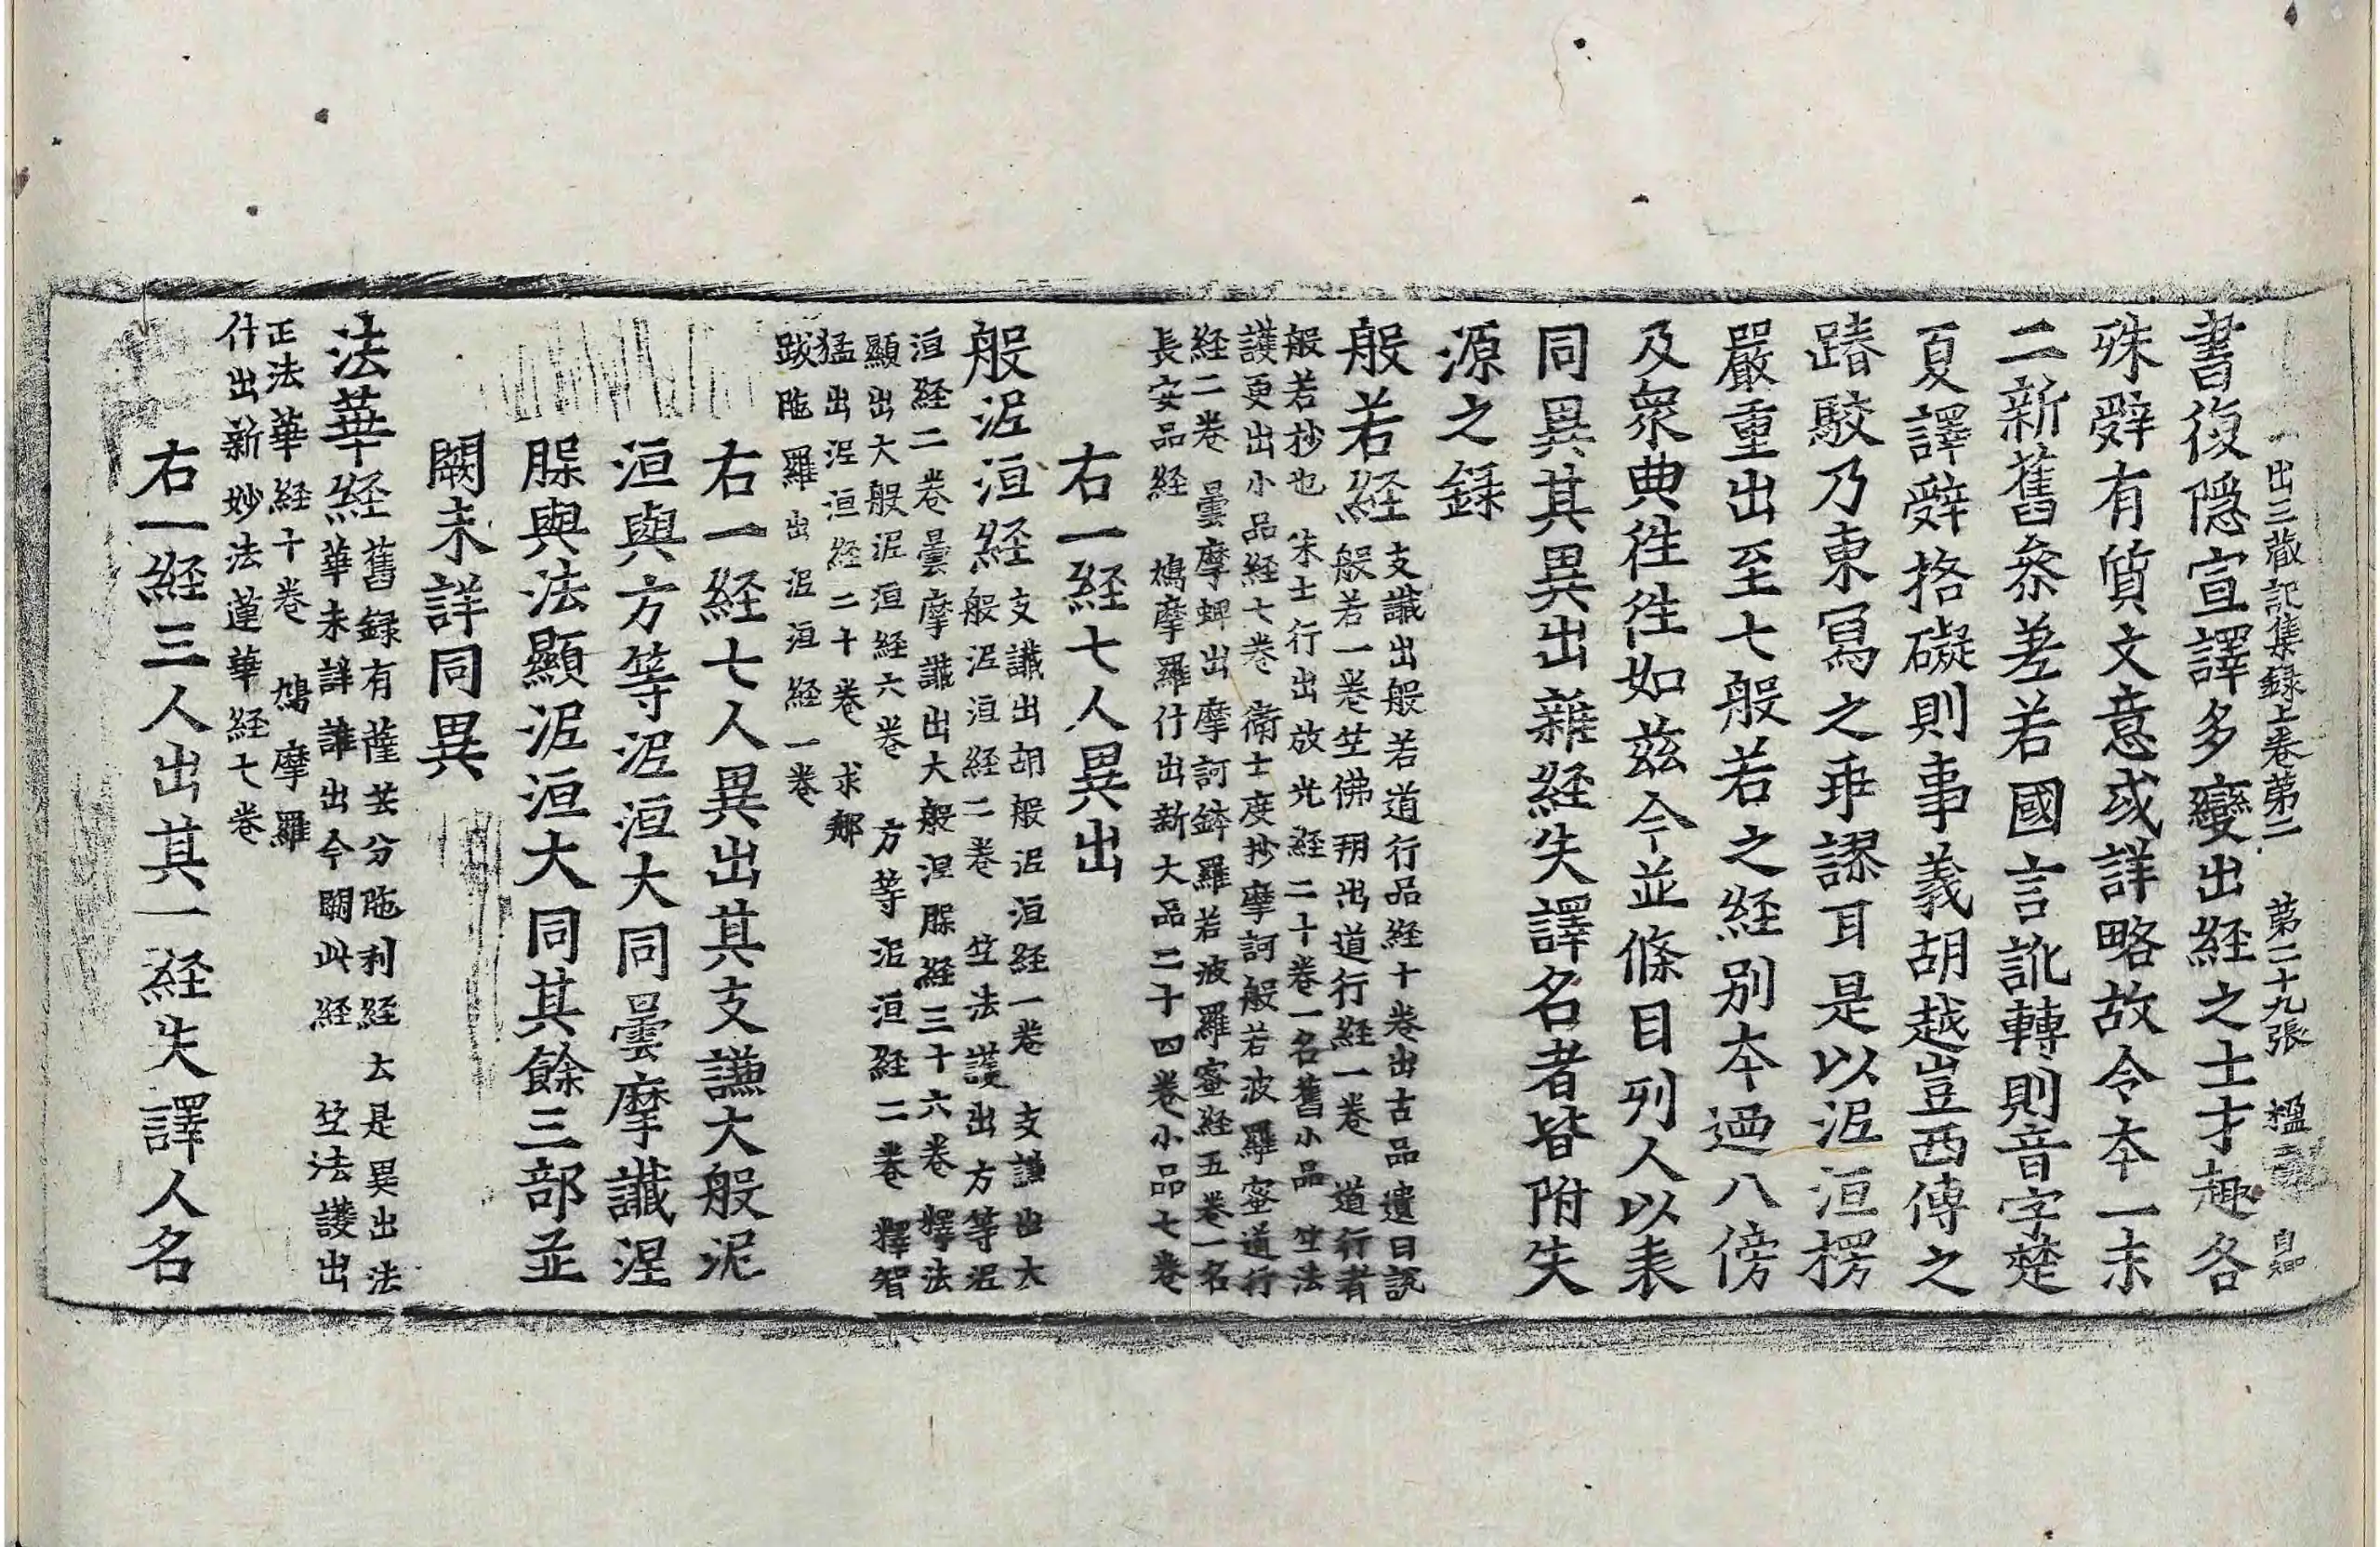 出三藏記集録上卷第二 第二十九張 楹
書復隠宣譯多變出経之士才趣各
殊辤有質文意或詳略故令本一末
二新舊叅差若國言訛轉則音字楚
夏譯辤格礙則事義胡越豈西傳之
踳駮乃東寫之乖謬耳是以泥洹楞
嚴重出至七般若之経别本廼八傍
及衆典往往如茲今並條目列人以表
同異其異出雜経失譯名者皆附失
源之録
般若経支讖出般若道行品経十卷出古品遺日說
般若一卷竺佛朔出道行経一卷 道行者
般若抄也 朱士行出放光経二十卷一名舊小品 竺法
護更出小品経七卷 衛士度抄摩訶般若波羅蜜道行
経二卷 曇摩蜱出摩訶鉢羅若波羅蜜経五卷一名
長安品経 鳩摩羅什出新大品二十四卷小品七卷
右一経七人異出
般泥洹経支讖出胡般泥洹経一卷 支謙出大
般泥洹経二卷 竺法護出方等泥
洹経二卷曇摩讖出大般涅槃経三十六卷 釋法
顯出大般泥洹経六卷 方等泥洹経二卷 釋智
猛出泥洹経二十卷 求那
跋陁羅出泥洹経一卷
右一経七人異出其支謙大般泥
洹與方等泥洹大同曇摩讖涅
槃與法顯泥洹大同其餘三部並
闕未詳同異
法華経舊録有薩芸分陁利経云是異出法
華未詳誰出今闕此経 竺法護出
正法華経十卷 鳩摩羅
什出新妙法蓮華経七卷
右一経三人出其一経失譯人名